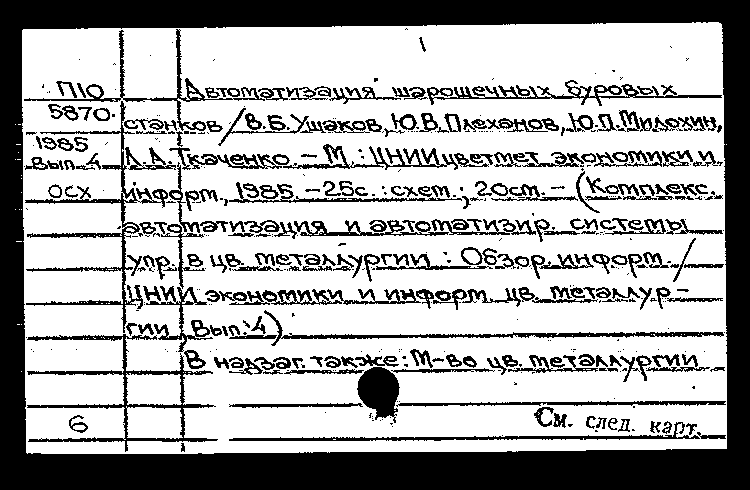 1
П10 Автоматизация шарошечных буровых
5870. станков / В.Б. Ушаков, Ю.В. Плеханов, Ю.П. Милохин,
1985
Вып. 4 А.А. Ткаченко. – М. : ЦНИИцветмет экономики и
осх информ., 1985. – 25с. : схем. ; 20см. – (Комплекс.
автоматизация и автоматизир. системы
упр. в цв. металлургии : Обзор. информ. /
ЦНИИ экономики и информ. цв. металлур-
гии ; Вып. 4).
В надзаг. также: М-во цв. металлургии
6 См. след. карт.